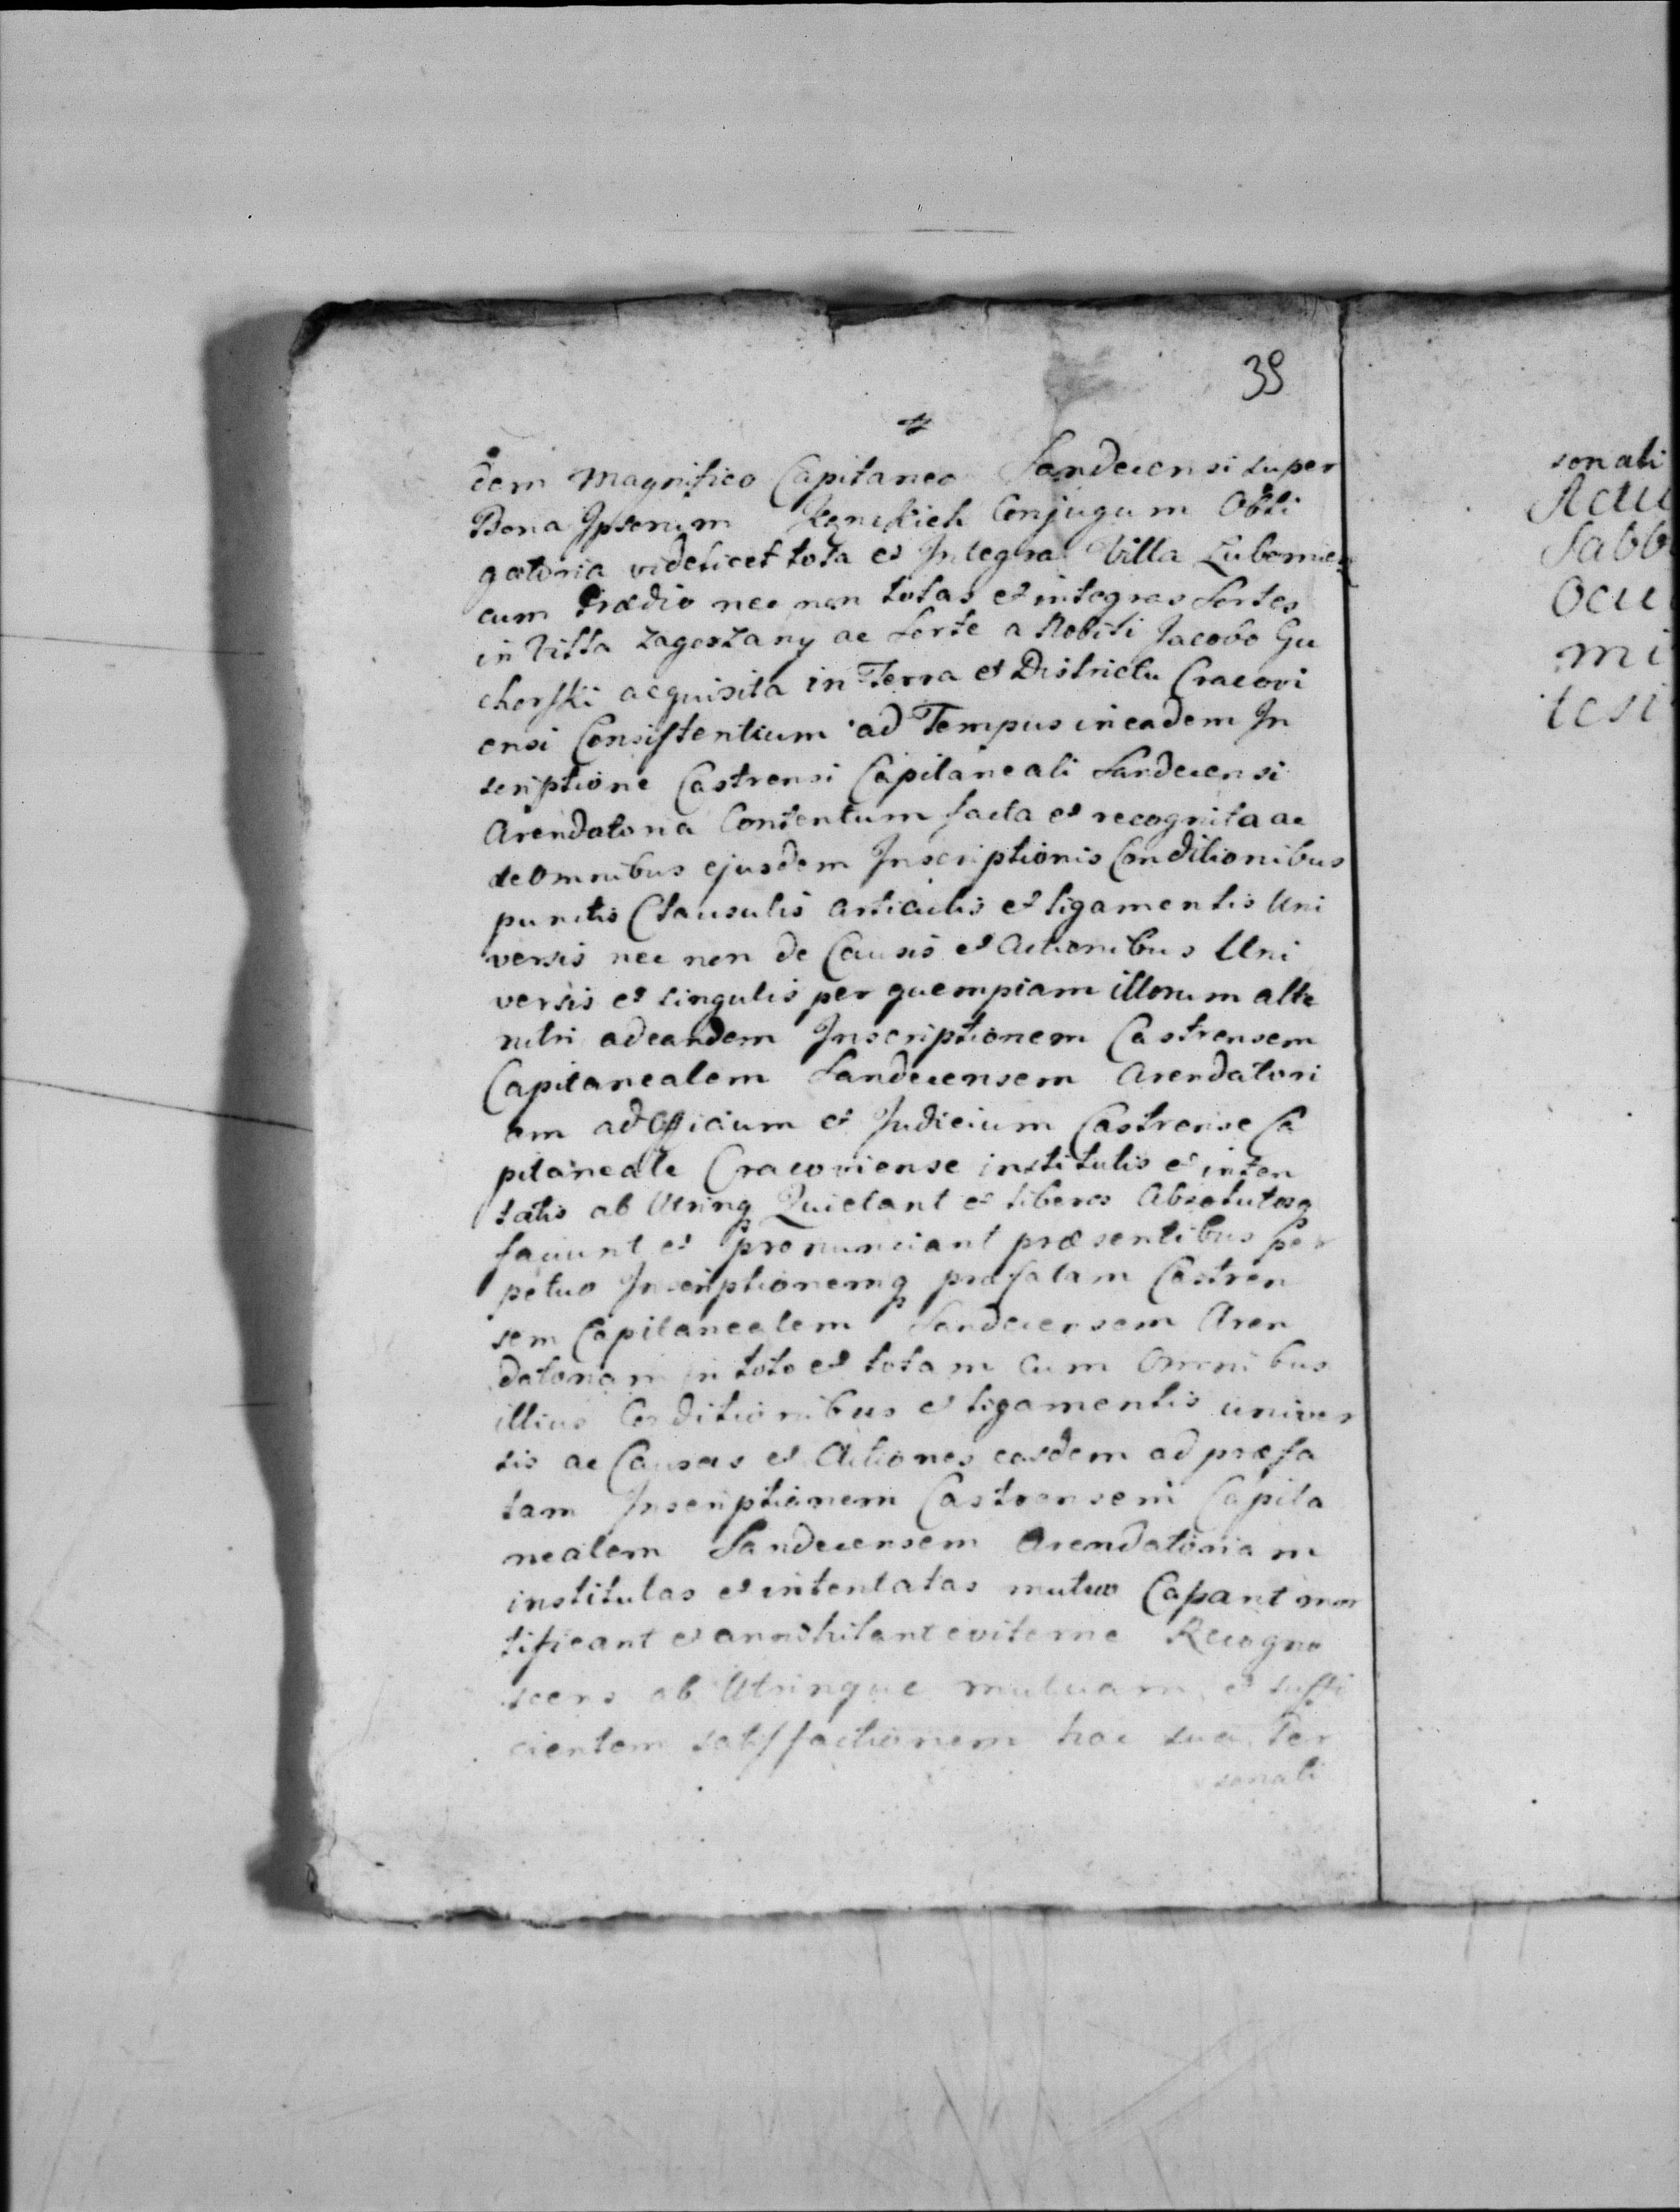 39
dem Magnifico Capitaneo Sandecensi super
Bona Ipsorum Conjugum Obli
gatoria videlicet tota et Integra Villa Lubomierz
cum Prædio nec non totas et integras Sortes
in Villa Zagorzany ac Sorte a Nobili Jacobo Gu
chorski acquisita in Terra et Districtu Cracovi
ensi Consistentium ad Tempus in eadem In
scriptione Castrensi Capitaneali Sandecensi
Arendatoria Contentum facta et recognita ac
de Omnibus ejusdem Inscriptionis Conditionibus
punctis Clausulis Articulis et ligamentis Uni
versis nec non de Causis et Actionibus Uni
versis et singulis per quempiam illorum alte
rutri ad eandem Inscriptionem Castrensem
Capitanealem Sandecensem Arendatori
am ad Officium et Judicium Castrense Ca
pitaneale Cracoviense institutis et inten
tatis ab Utrinq Quietant et liberos Absolutosq
faciunt et pronunciant præsentibus per
petuo Inscriptionemq præfatam Castren
sem Capitanealem Sandecensem Aren
datoriam in toto et totam Cum Omnibus
illius Conditionibus et ligamentis univer
sis ac Causas et Actiones easdem ad præfa
tam Inscriptionem Castrensem Capita
nealem Sandecensem Arendatoriam
institutas et intentatas mutuo Cassant mor
tificant et annihilant eviterne Recogno
scens ab Utrinque mutuam et suffi
cientem satisfactionem hac sua Per
sonali
sonali
Sabb
mi